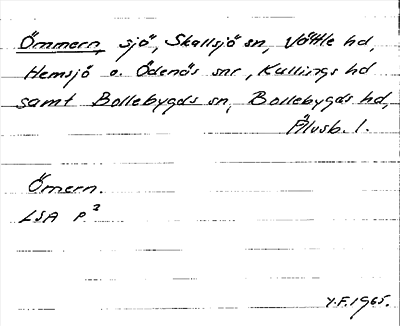 Ömmern, sjö, Skallsjö sn, Vättle hd,
Hemsjö o. Ödenäs snr, Kullings hd
samt Bollebygds sn, Bollebygds hd,
Älvsb. l.
Ömern.
LSA P²
Y.F. 1965.